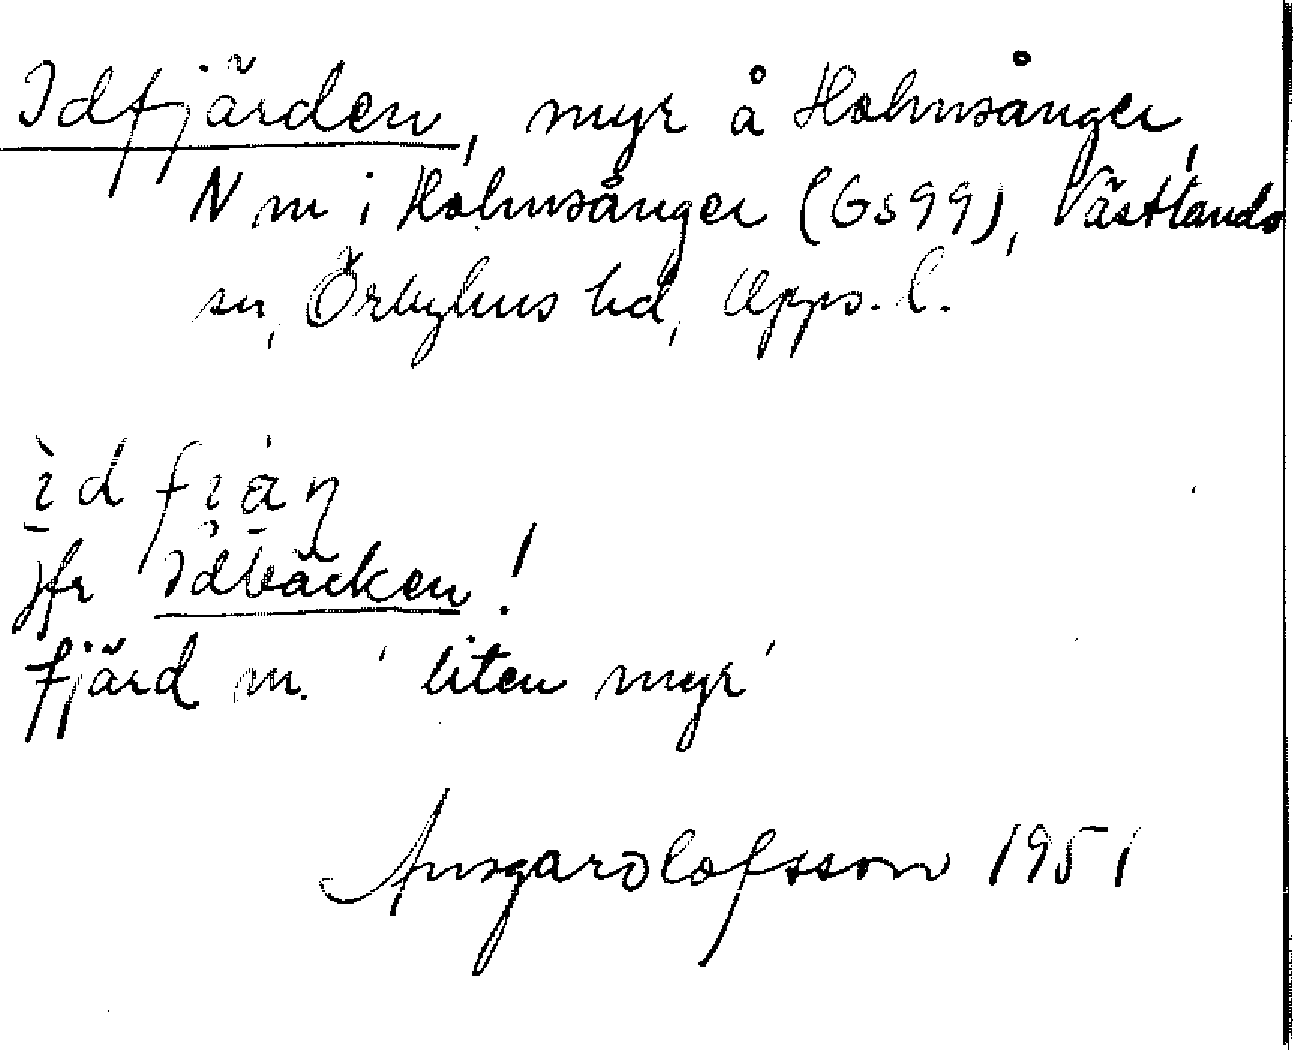 Idfjärden, myr å Holmsånger,
N m i Holmsånger (Gs 99), Västlands
sn, Örbyhus hd, Upps. l.
jfr Idbäcken!
fjärd m. ' liten myr '
Ansgar Olofsson 1951